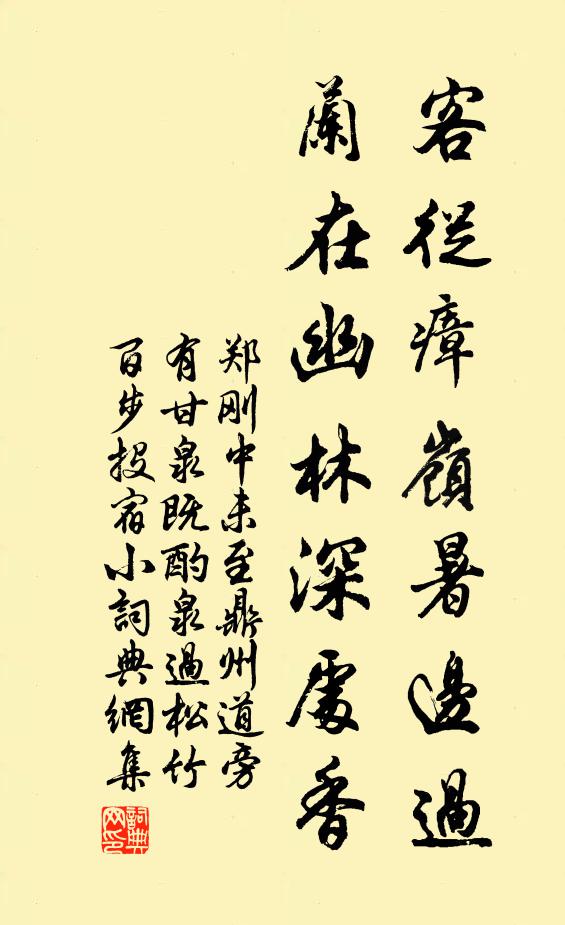 客從瘴嶺暑邊過
蘭在幽林深處香
郑刚中未至鼎州道旁
有甘泉既酌泉過松竹
百步投宿小詞典網集
詞典
网印